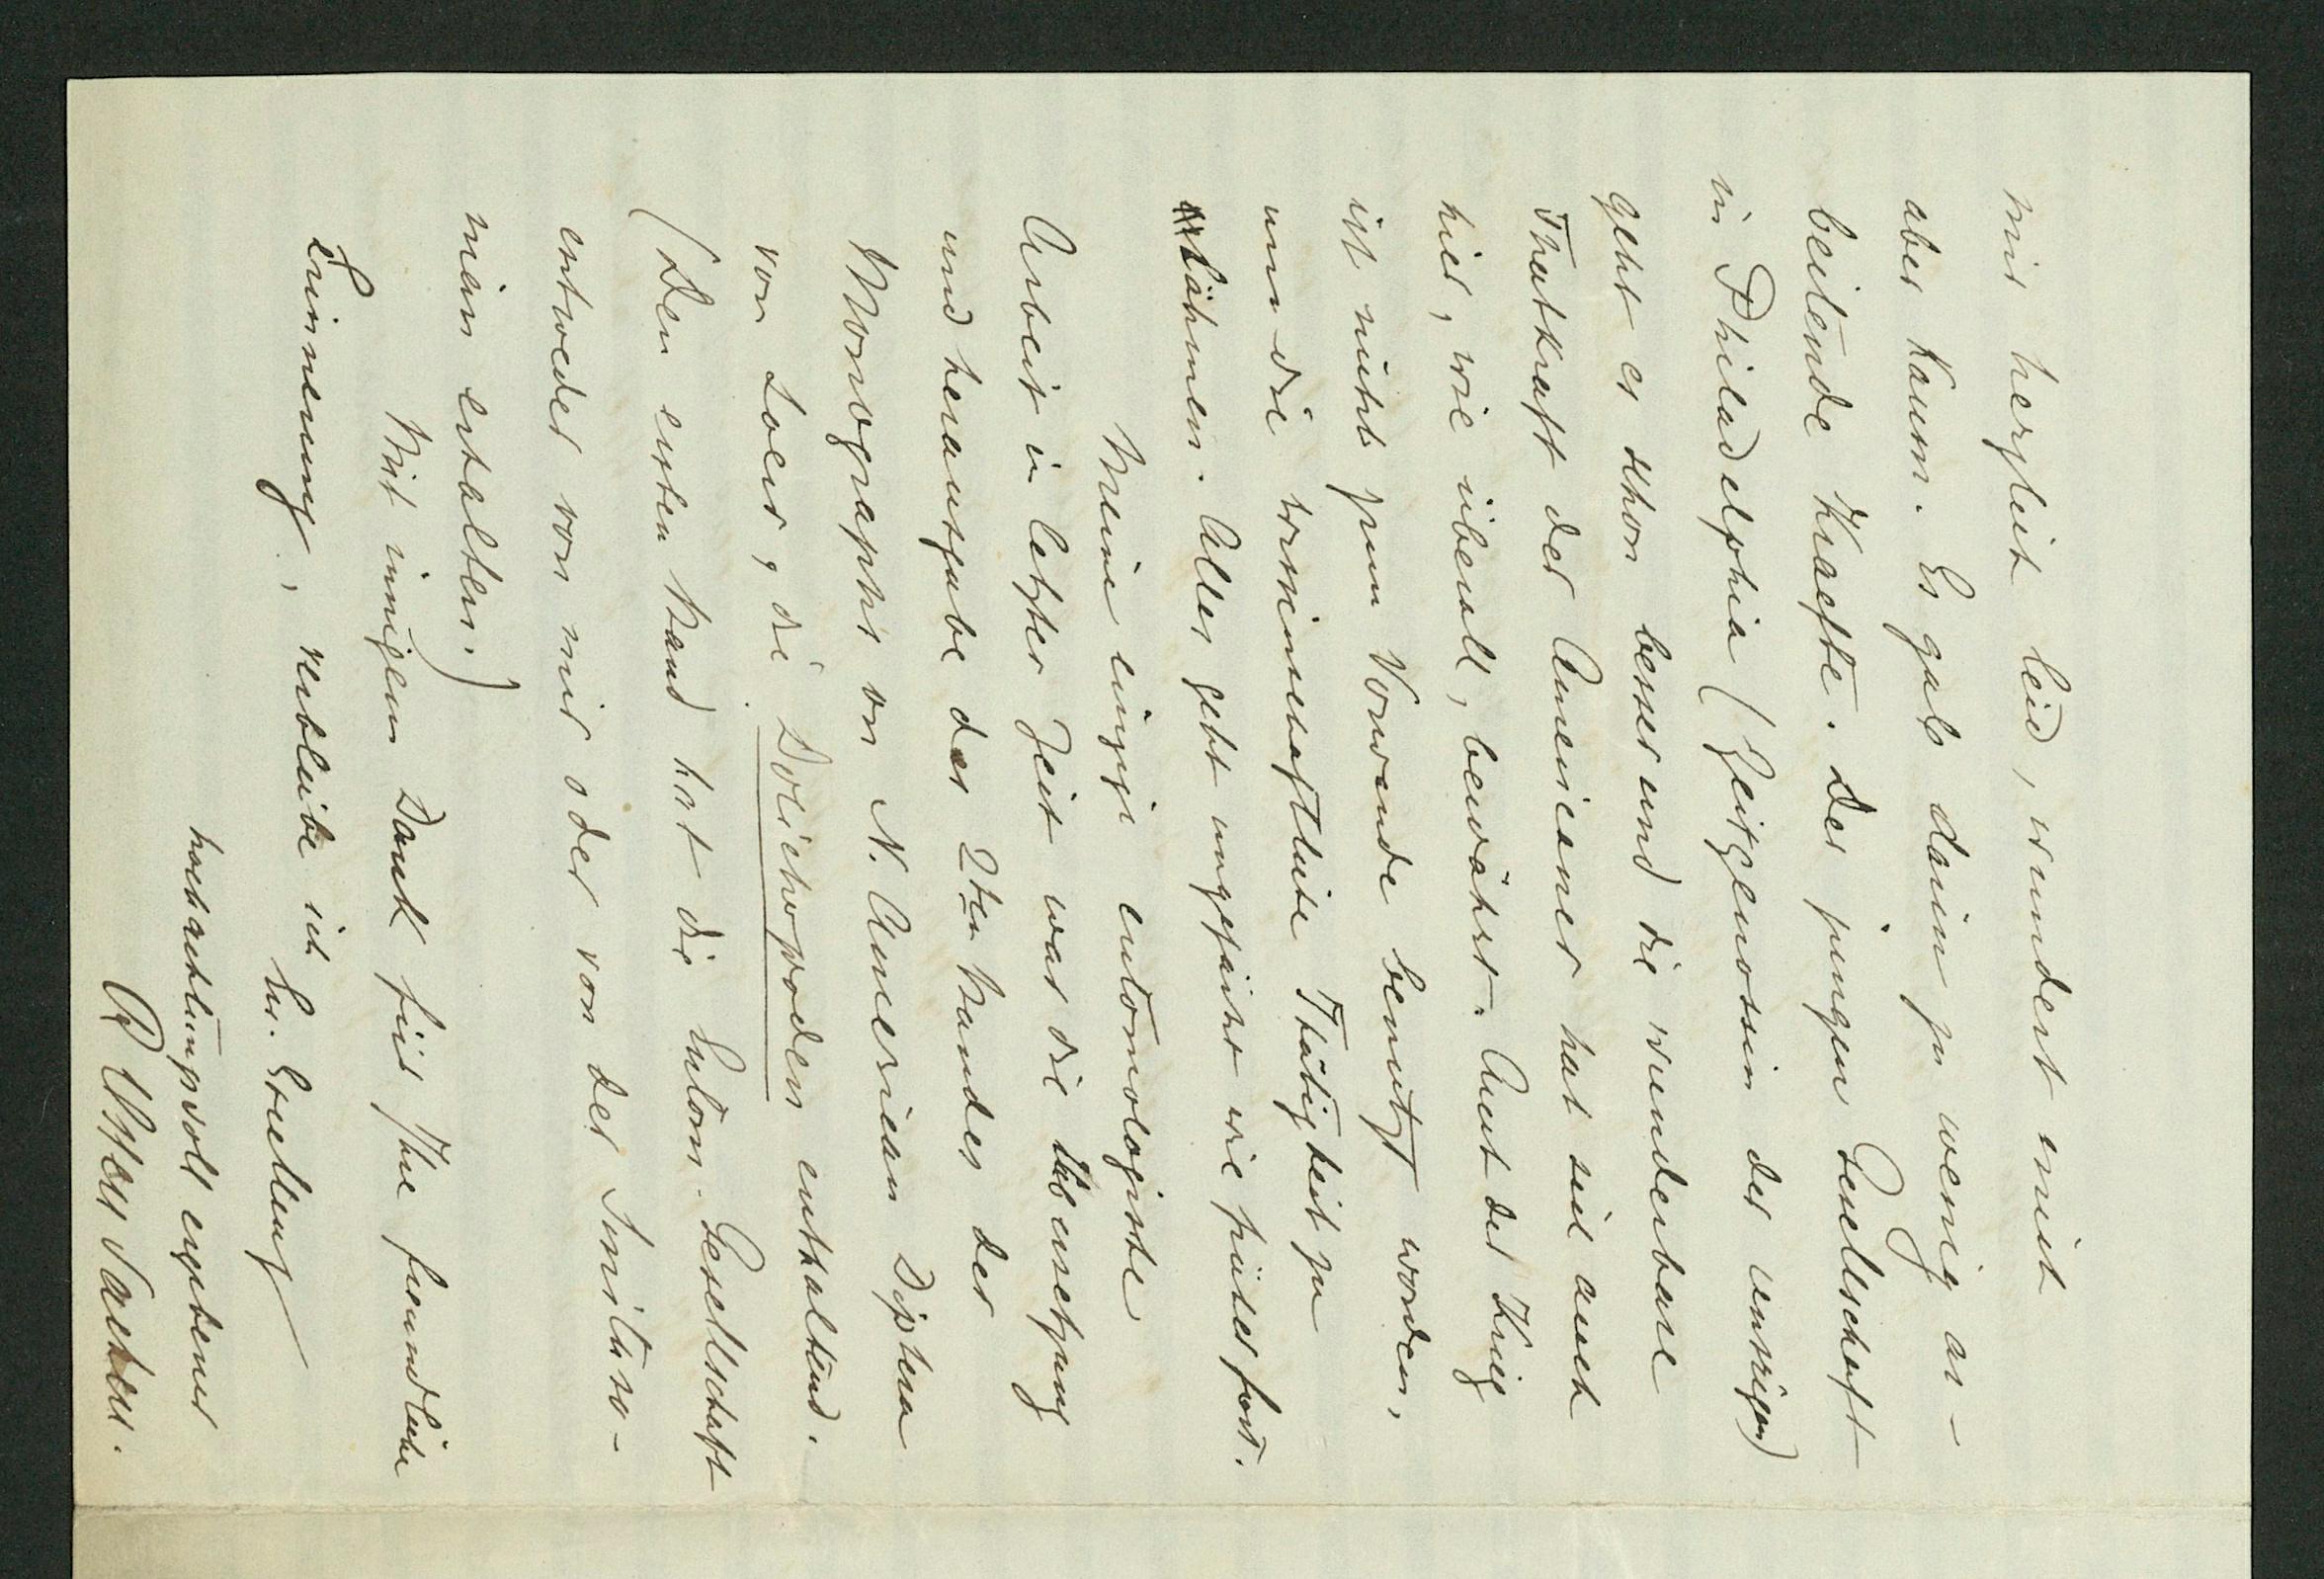 mir herzlich leid, wundert mich
aber kaum. Es gab darin zu wenig ar-
beitende Kraefte. Der jungen Gesellschaft
in Philadelphia (Zeitgenossin der unsrigen)
geht es schon besser und die wunderbare
Thatkraft der Americaner hat sich auch
hier, wie überall, bewährt. Auch der Krieg
ist nicht zum Vorwande benutzt worden,
um die wissenschaftliche Thätigkeit zu
lähmen. Alles geht ungefähr wie früher fort.
Meine einzige entomologische
Arbeit in letzter Zeit war die Uebersetzung
und herausgabe des 2ten Bandes der
Monographs on N. American Diptera
von Loew, die Dolichopoden enthaltend.
(Den ersten Band hat die Entom. Gesellschaft
entweder von mir oder von der Smithso-
nian erhalten.)
Mit innigem Dank für Ihre freundliche
Erinnerung, verbleibe ich
Ew. 
hochachtungsvoll ergebener
R Osten Sacken.